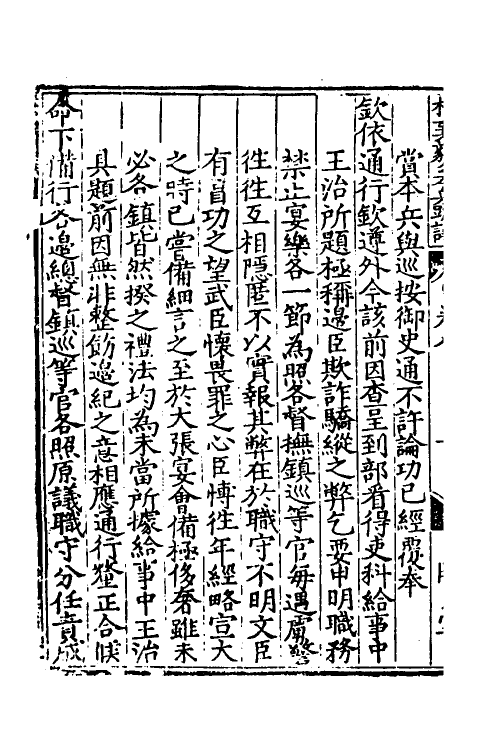 賞本兵與巡按御史通不許論功已經覆奉
欽依通行欽遵外今該前因查呈到部看得吏科給事中
王治所題極稱邊臣欺詐驕縱之弊乞要申明職務
禁止宴樂各一節為照各督撫鎮巡等官每遇虜警
徃徃互相隱匿不以實報其弊在於職守不明文臣
有冒功之望武臣懷畏罪之心臣愽徃年經略宣大
之時已嘗備細言之至於大張宴會備極侈奢雖未
必各鎮皆然揆之禮法均為未當所據給事中王治
具題前因無非整飭邊紀之意相應通行釐正合候
命下備行各邊總督鎮巡等官各照原議職守分任責成